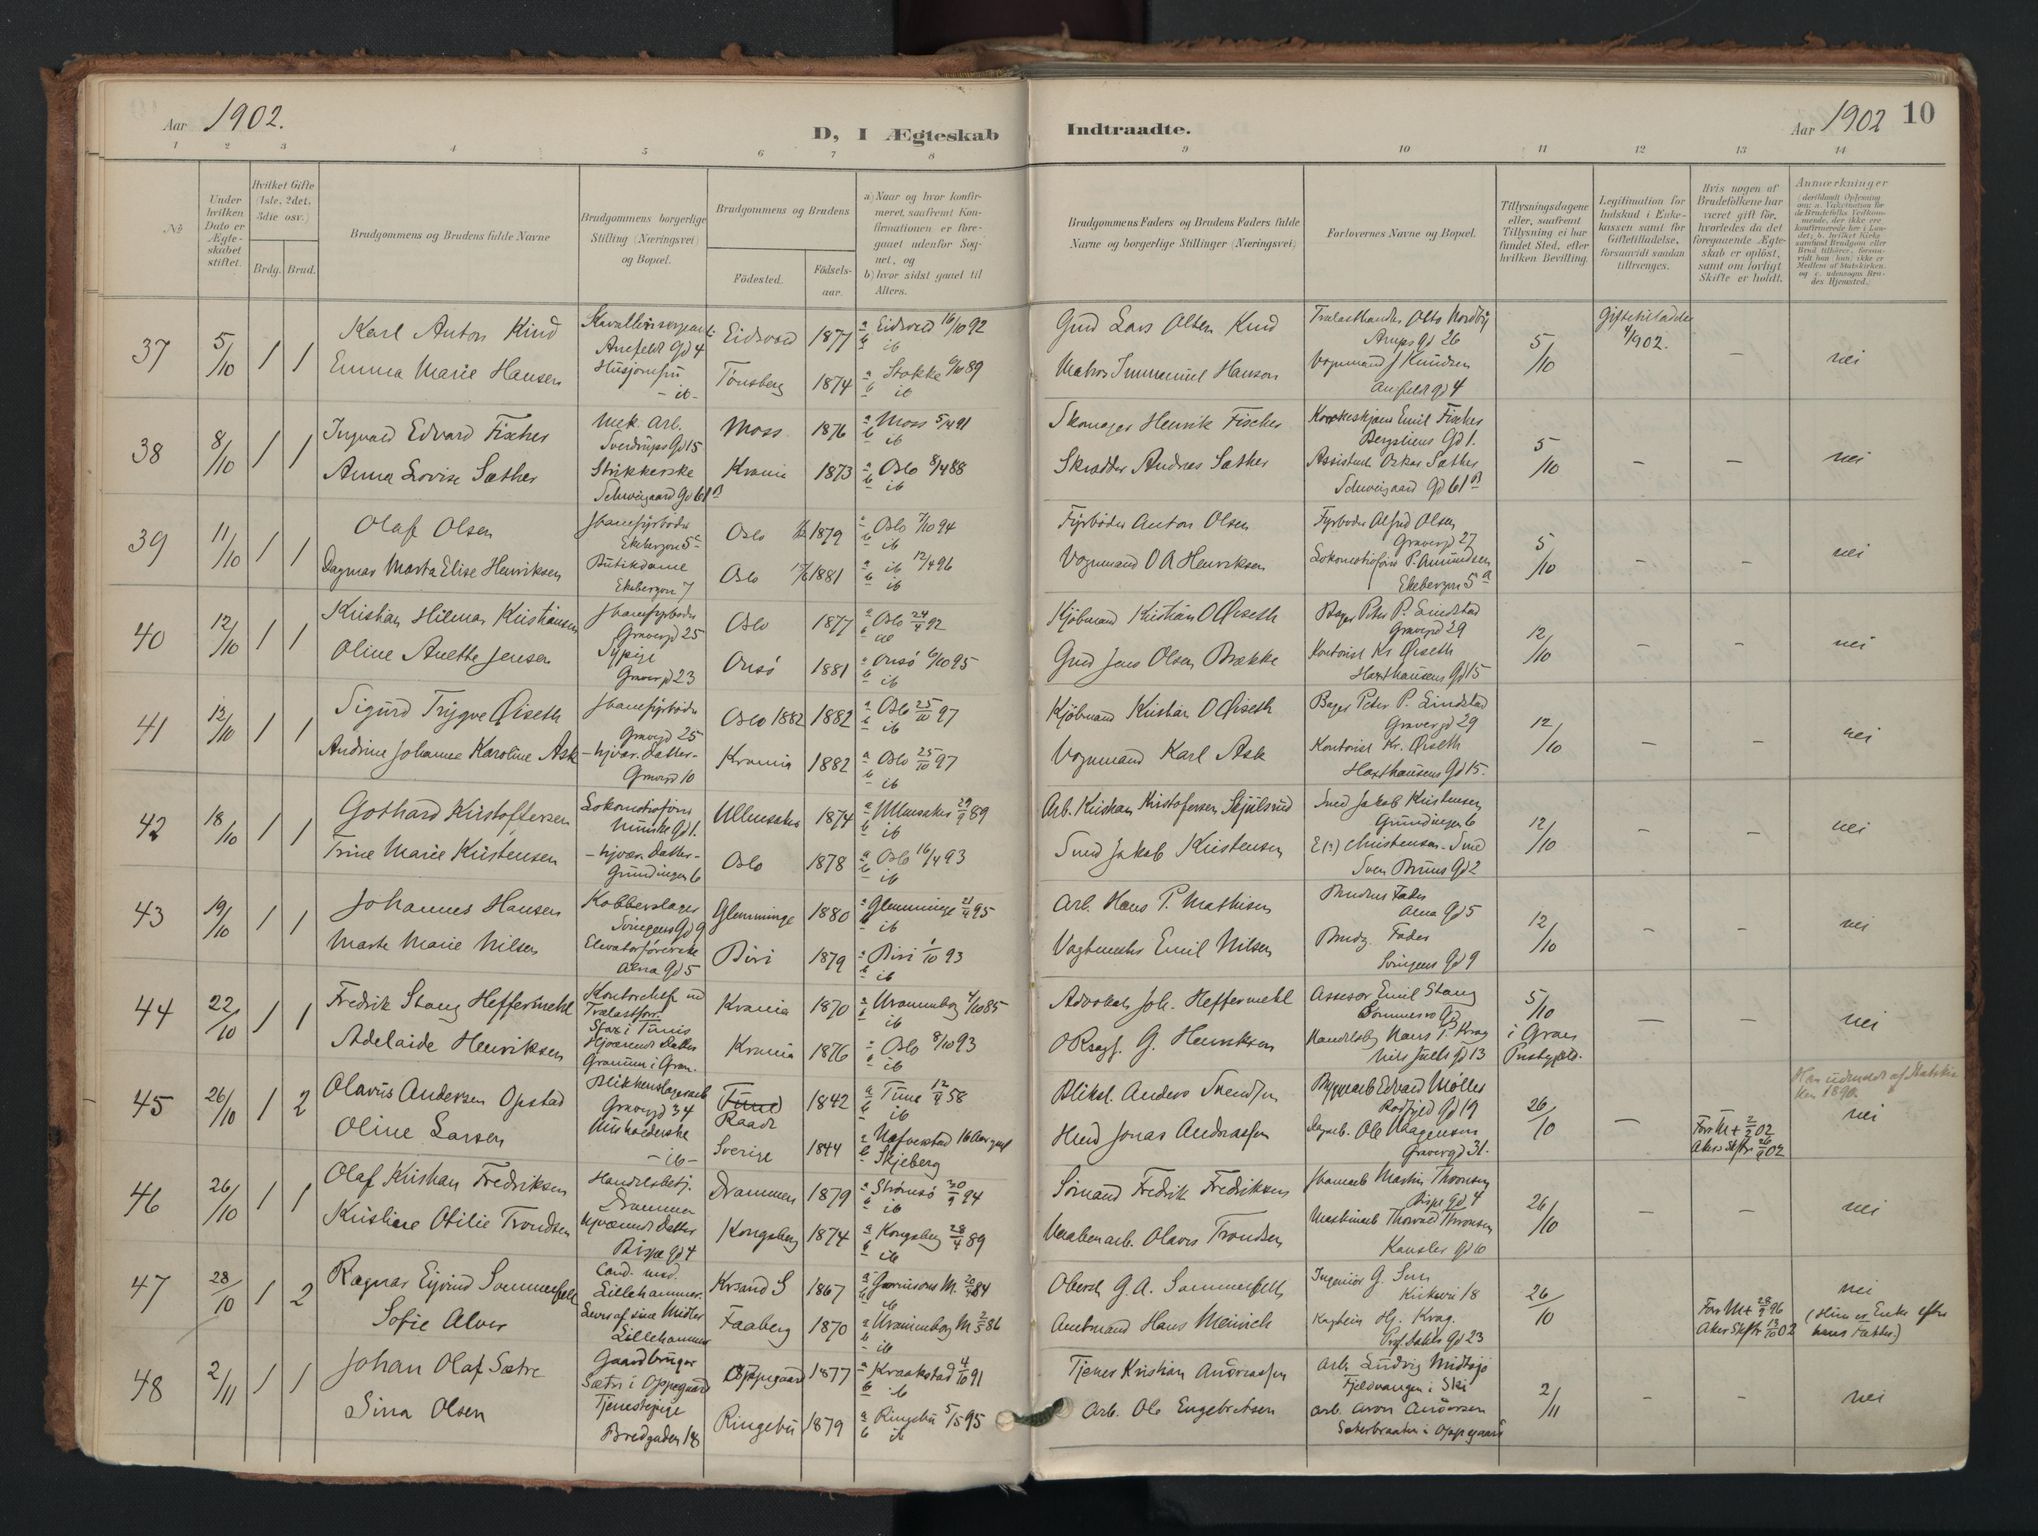 Aar 1902.
D, I Ægteskab Indtraadte.
Aar 1902 10
1 2 3 4 5 6 7 8 9 10 11 12 13 14
No
Under hvilken Dato er Ægteskabet stiftet.
Hvilket Gifte (1ste, 2det, 3die osv.)
Brdg. Brud.
Brudgommens og Brudens fulde Navne
Brudgommens borgerlige Stilling (Næringsvei) og Bopæl.
Brudgommens og Brudens
Fødested. Fødselsaar.
a) Naar og hvor konfirmeret, saafremt Konfirmationen er foregaaet udenfor Sognet, og
b) hvor sidst gaaet til Alters.
Brudgommens Faders og Brudens Faders fulde Navne og borgerlige Stillinger (Næringsvei)
Forlovernes Navne og Bopæl.
Tillysningsdagene eller, saafremt Tillysning ei har fundet Sted, efter hvilken Bevilling.
Legitimation for Indskud i Enkekassen samt for Giftetilladelse, forsaavidt saadan tiltrænges.
Hvis nogen af Brudefolkene har været gift før, hvorledes da det foregaaende Ægteskab er opløst, samt om lovligt Skifte er holdt.
Anmærkninger
37 5/10 1 1 Karl Anton Kind Eidsvold 1877 a Eidsvold 16/10 92 Gmd Lars Olsen Kind Trælasthandler Otto Nordby 5/10 Giftetilladelse 4/902. — nei
Anefeldt Gd 4 b ib Arups gd 26
Emma Marie Hansen Husjomfru Tønsberg 1874 a Stokke 6/10 89 Matros Immanuel Hanson Vognmand J Knudsen
- ib - b ib Anfeldt gd 4
38 8/10 1 1 Ingvald Edvard Fischer Mek. Arb. Moss 1876 a Moss 5/4 91 Skomager Henrik Fischer Emil Fischer 5/10 — — nei
Sverdrups Gd 15 b ib Bergsliens Gd 1.
Anna Lovise Sæther Strikkerske Krania 1873 a Oslo 8/4 88 Skrædder Andreas Sæther Assistent Oskar Sæther
Schweigaard Gd 61 B b ib Schweigaard Gd 61 B
39 11/10 1 1 Olaf Olsen Jbanefyrbøder Oslo 1879 a Oslo 7/10 94 Fyrbøder Anton Olsen Fyrbøder Alfred Olsen 5/10 — — nei
Ekebergvn 5 b ib Gravergd 27
Dagmar Marta Elise Henriksen Butikdame Oslo 1881 a ib 12/4 96 Vognmand O A Henriksen Lokomotivfører P. Amundsen
Ekebergvn 7 b ib Ekebergvn 5 a
40 12/10 1 1 Kristian Hilmar Kristiansen Jbanefyrbøder Oslo 1877 a Oslo 24/4 92 Kjøbmand Kristian O Øiseth Bager Peter P. Lindstad 12/10 — — nei
Gravergd 25 Gravergd 29
Oline Anette Jensen Sypige Onsø 1881 a Onsø 6/10 95 Gmd Jens Olsen Brække Kontorist Kr. Øiseth
Gravergd 23 b ib Haxthausens Gd 15
41 12/10 1 1 Sigurd Trygve Øiseth Jbanefyrbøder Oslo 1882 1882 a Oslo 25/10 97 Kjøbmand Kristian O Øiseth Bager Peter P. Lindstad 12/10 — — nei
Gravergd 25 Gravergd 29
Andrine Johanne Karoline Ask - hjvær. Datter - Krania 1882 a Oslo 25/10 97 Vognmand Karl Ask Kontorist Kr. Øiseth
Gravergd 10 b ib Haxthausens Gd 15.
42 18/10 1 1 Gothard Kristoffersen Lokomotivfører Ullensaker 1874 a Ullensaker 29/9 89 Arb. Kristian Kristofersen Skjulsrud Smed Jakob Kristensen 12/10 — — nei
Munkegd 1. b ib Grundingen 6
Trine Marie Kristensen - hjvær. Datter - Oslo 1878 a Oslo 16/4 93 Smed Jakob Kristensen Christensen - Smed
Grundingen 6 b ib Sven Bruns Gd 2
43 19/10 1 1 Johannes Hansen Kobberslager Glemminge 1880 a Glemminge 21/4 95 Arb. Hans P. Mathisen Brudens Fader 12/10 — — nei
Svingens Gd 9 b ib Alna Gd 5
Marte Marie Nilsen Elevatorførerske Biri 1879 a Biri 1/10 93 Vagtmester Emil Nilsen Brudg. Fader
Alna Gd 5 b ib Svingens Gd 9
44 22/10 1 1 Fredrik Stang Heffermehl Kontorchef ved Krania 1870 a Uranienborg 4/10 85 Advokat Joh. Heffermehl Assesor Emil Stang 5/10 — — nei
Trælastforr. b ib Sommerro Gd
Sfax i Tunis
Adelaide Henriksen Hjværende Datter Krania 1876 a Oslo 8/10 93 O Ragf. G. Henriksen Handelsby Hans P. Krag i Gran
Granum i Gran. b ib Nils Juels gd 13 Prstgjeld.
45 26/10 1 2 Olavus Andersen Opstad Blikkenslagerarb Tune 1842 a Tune 12/9 58 Bliksl. Anders Svendsen Byggearb Edvard Møller 26/10 Har udmeldt af Statskirken 1890. nei
Gravergd 34 Raade b ib Rodfjed Gd 19
Oline Larsen Husholderske Sverige 1844 a 16 Aar gml Hmd Jonas Andreassen Dagarb. Ole Haagensen Fors M + 2/2 02
- ib - b Skjeberg Gravergd 31. Akers Skftr 26/9 02
46 26/10 1 1 Olaf Kristian Fredriksen Handelsbetj. Drammen 1879 a Strømsø 30/9 94 Sømand Fredrik Fredriksen Jbanearb Martin Thronsen 26/10 — — nei
Drammen b ib Bispegd 4
Kristine Otilie Trondsen Hjværende Datter Kongsberg 1874 a Kongsberg 28/4 89 Vaabenarb. Olavus Trondsen Maskinarb Thorvald Thronsen
Bispegd 4 b ib Kansler Gd 10
47 28/10 1 2 Ragnar Ejvind Sommerfelt Cand. med. Krsand S 1867 a Garnisons M. 20/4 84 Oberst G. A. Sommerfelt Ingeniør G. Sem 26/10 nei
Lillehammer. b ib Kirkevei 18
Sofie Alver Lever af sine Midler Faaberg 1870 a Uranienborg M 2/5 86 Amtmand Hans Meinich Kaptein Hj. Krag. Fors M + 28/9 96 (Hun er Enke efter
Lillehammer b ib Prof Dahls Gd 23 Aker Skftr 13/10 02 hans Fætter)
48 2/11 1 1 Johan Olaf Sætre Gaardbruger Oppegaard 1877 a Kraakstad 4/10 91 Tjener Kristian Andreassen Arb. Ludvig Midtsjø 2/11 — — nei
Sætre i Oppegaard b ib Fjeldvangen i Ski
Sina Olsen Tjenestepige Ringebu 1879 a Ringebu 5/5 95 Arb. Ole Engebretsen Arb. Aron Andersen
Bredgaden 18 b ib Sæterbraaten i Oppegaard